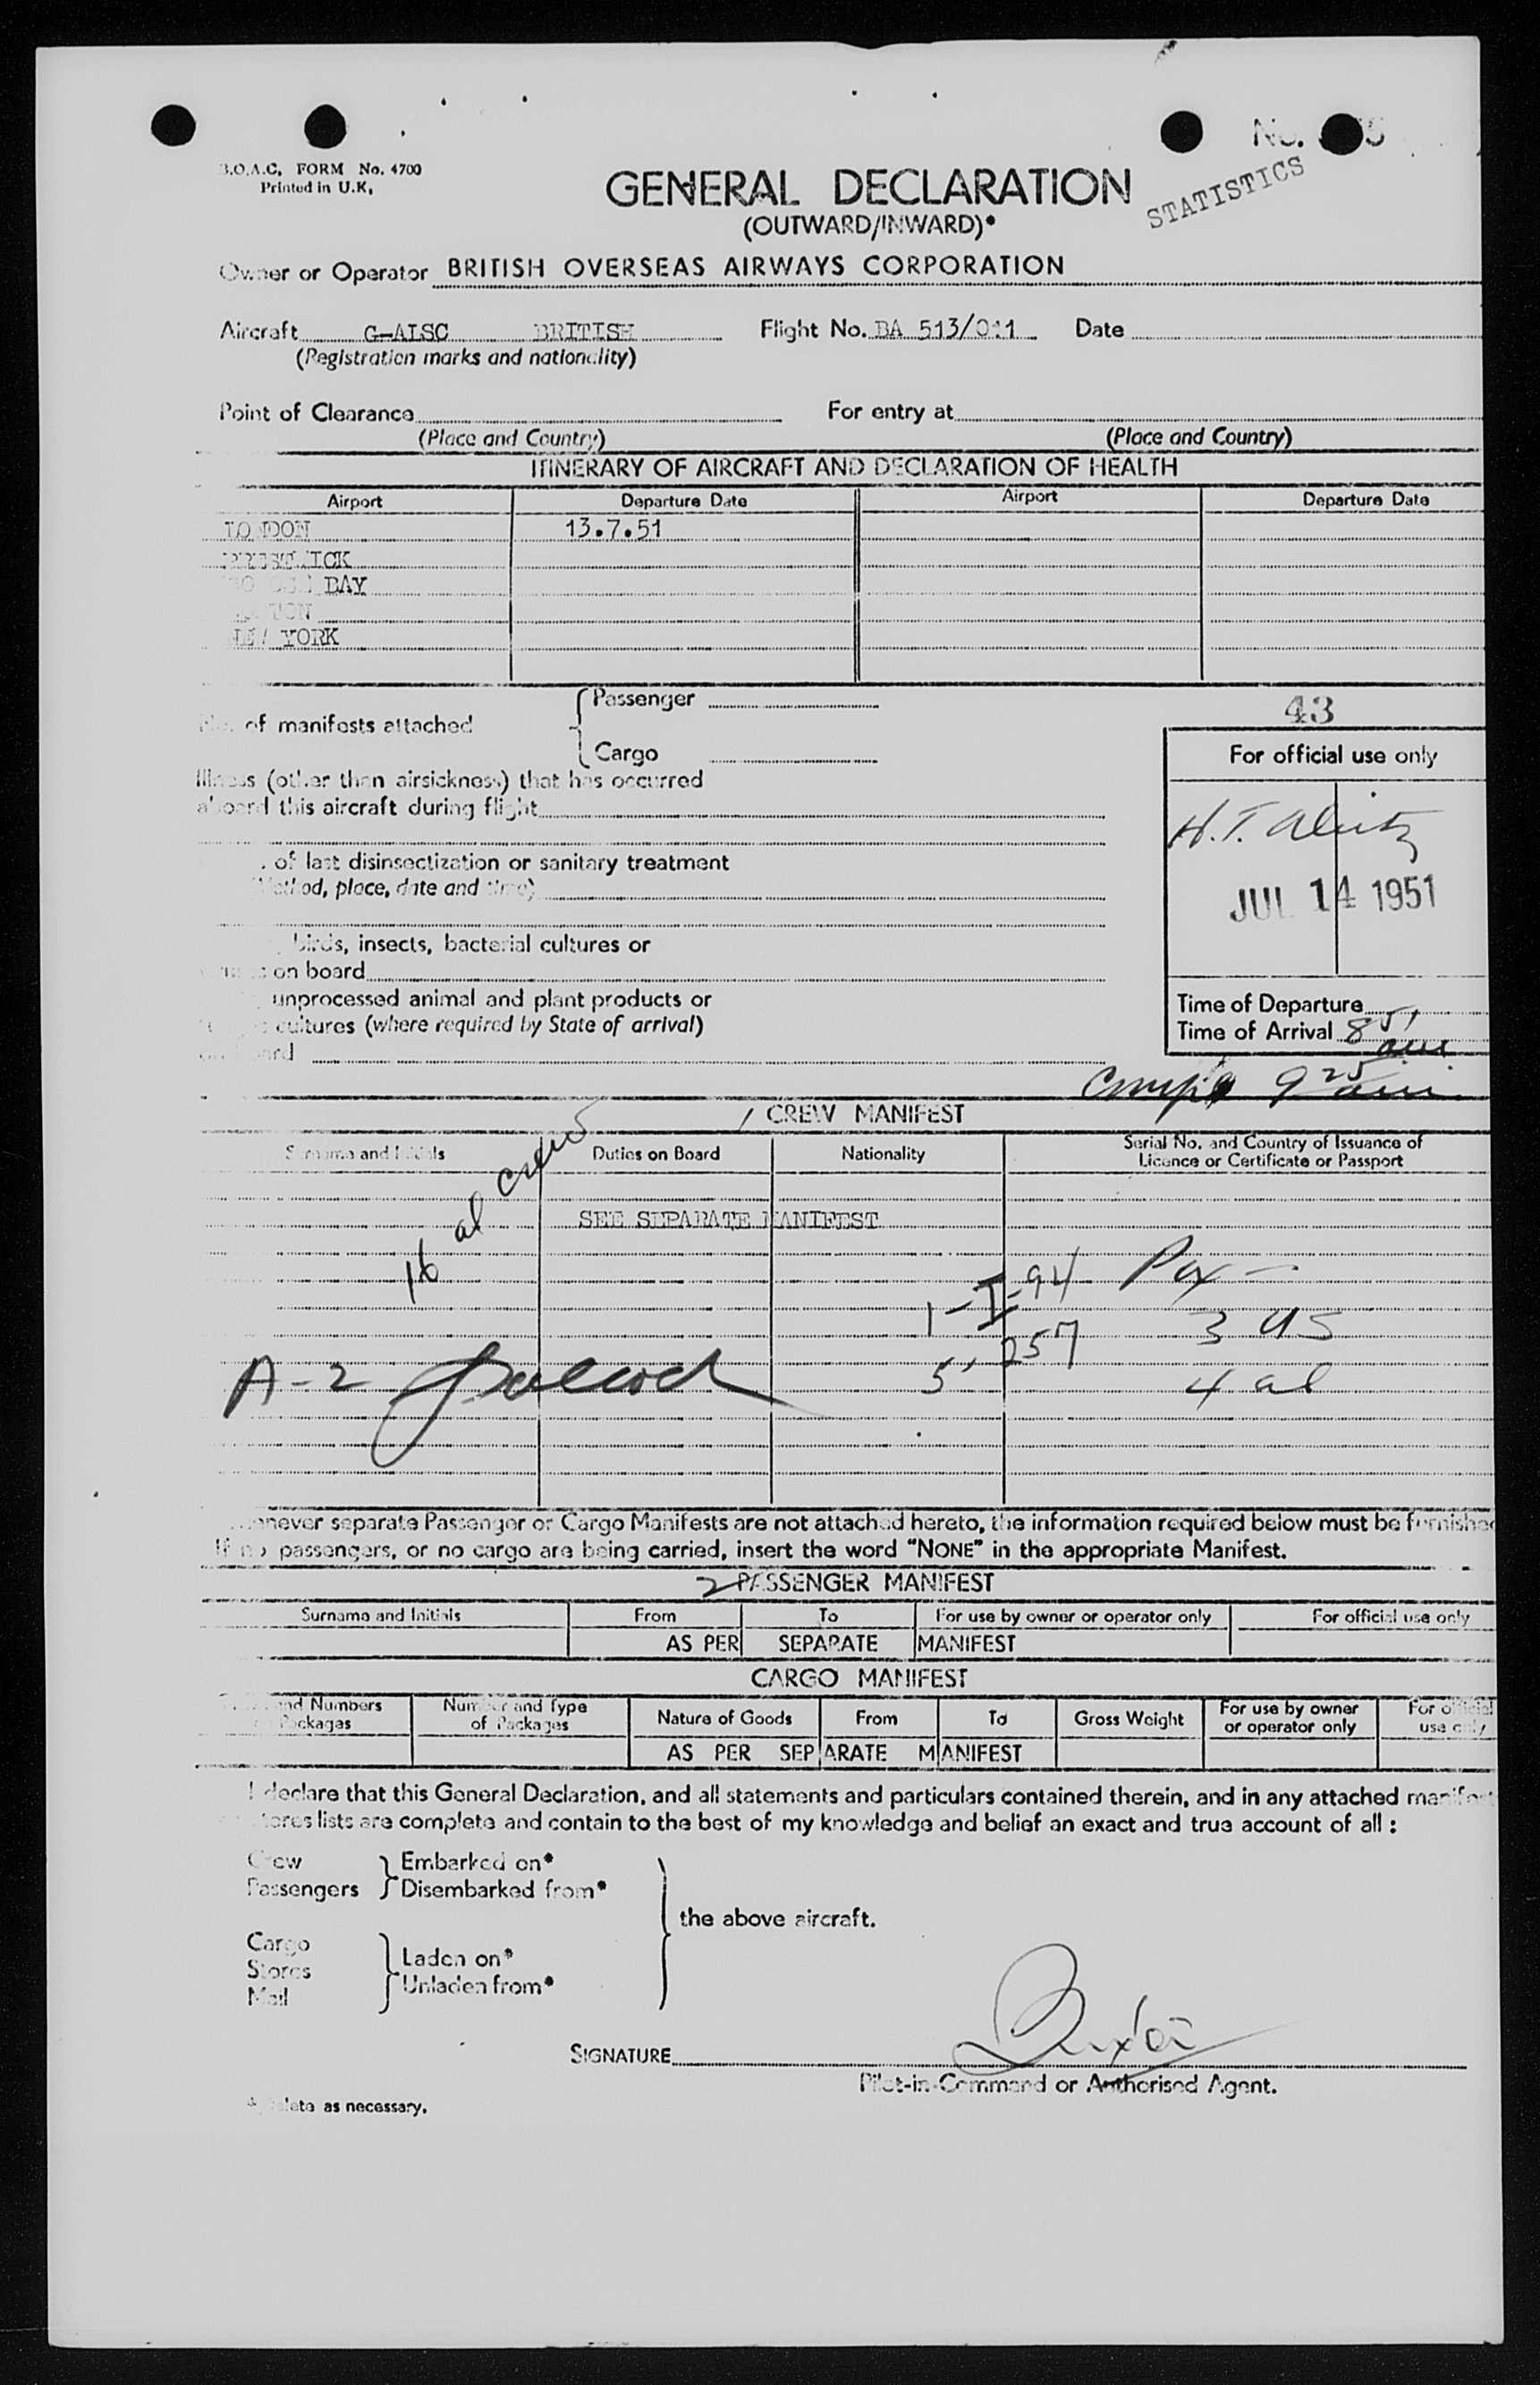 B.O.A.C. FORM No. 4700
Printed in U.K.
No.
STATISTICS
GENERAL DECLARATION
(OUTWARD/INWARD)*
Owner or Operator BRITISH OVERSEAS AIRWAYS CORPORATION
Aircraft G-ALSC BRITISH Flight No. BA 513/011 Date
(Registration marks and nationality)
Point of Clearance For entry at
(Place and Country) (Place and Country)
ITINERARY OF AIRCRAFT AND DECLARATION OF HEALTH
Airport Departure Date Airport Departure Date
LONDON 13.7.51
PRESTWICK
BAY
NEW YORK
No. of manifests attached { Passenger
Cargo
43
For official use only
Illness (other than airsickness) that has occurred
aboard this aircraft during flight
H.T.
JUL 14 1951
of last disinsectization or sanitary treatment
(Method, place, date and time)
birds, insects, bacterial cultures or
on board
unprocessed animal and plant products or
cultures (where required by State of arrival)
Time of Departure
Time of Arrival 8 51 am
9 25 am
1 CREW MANIFEST
Surname and Initials Duties on Board Nationality Serial No. and Country of Issuance of
Licence or Certificate or Passport
16 al crew
SEE SEPARATE MANIFEST
1-I-94 Pax -
3 US
5' 257
4 al
A-2
Whenever separate Passenger or Cargo Manifests are not attached hereto, the information required below must be furnished
If no passengers, or no cargo are being carried, insert the word "NONE" in the appropriate Manifest.
2 PASSENGER MANIFEST
Surname and Initials From To For use by owner or operator only For official use only
AS PER SEPARATE MANIFEST
CARGO MANIFEST
and Numbers Number and Type Nature of Goods From To Gross Weight For use by owner For official
Packages of Packages or operator only use only
AS PER SEPARATE MANIFEST
I declare that this General Declaration, and all statements and particulars contained therein, and in any attached
lists are complete and contain to the best of my knowledge and belief an exact and true account of all :
Crew } Embarked on*
Passengers } Disembarked from*
the above aircraft.
Cargo
Stores } Laden on*
Mail } Unladen from*
SIGNATURE
Pilot-in-Command or Authorised Agent.
as necessary.